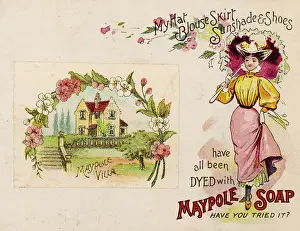 My Hat
Blouse, Skirt,
Sunshade & Shoes
MAYPOLE
VILLA
have
all been
DYED with
MAYPOLE SOAP
HAVE YOU TRIED IT?